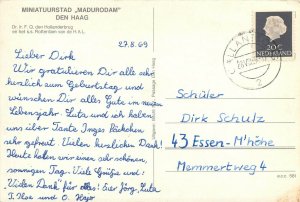 MINIATUURSTAD „MADURODAM"
DEN HAAG
Dr. Ir. F. Q. den Hollanderbrug
en het s.s. Rotterdam van de H.A.L.
27.8.69
Lieber Dirk
Wir gratulieren Dir alle sehr
herzlich zum Geburtstag und
wünschen Dir alles Gute im neuen
Lebensjahr. Luta und ich haben
uns über Tante Inges Päckchen
sehr gefreut. Vielen herzlichen Dank!
Heute hatten wir einen sehr schönen,
sonnigen Tag. Viele Grüße und
Vielen Dank für alles! Eier Jörg, Luta
T. und O.
NEDERLAND
20 c
Schüler
Dirk Schulz
43 Essen-M'höhe
Memmertweg 4